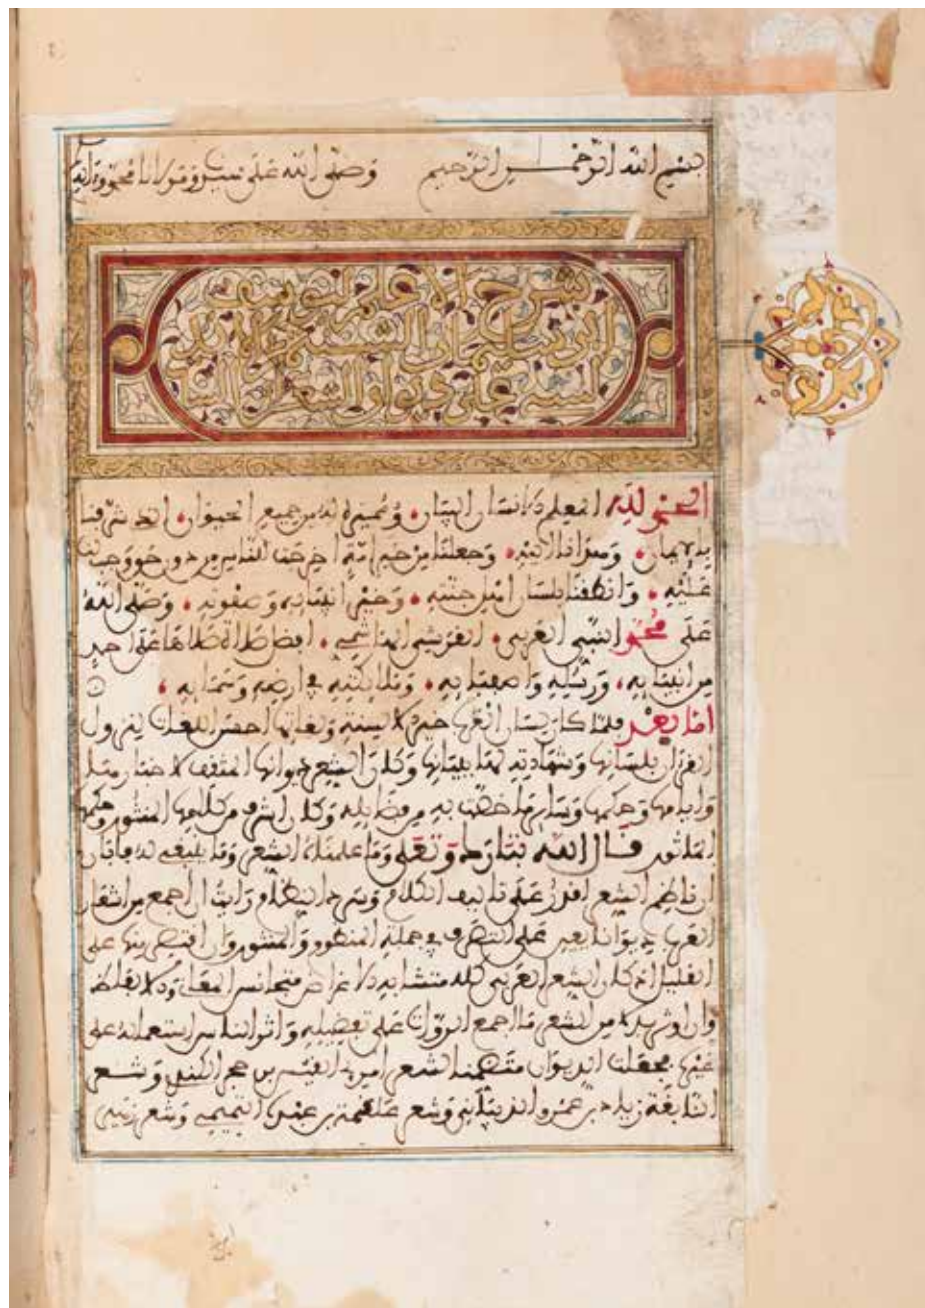 بسم الله الرحمن الرحيم وصلى الله على سيدنا ومولانا محمد وءاله
شرح الأعلم
الحمد لله المعلم الانسان البيان ومميزه به من جميع الحيوان الذي شرفنا
وجعلنا من خير امة اخرجت للناس من
عليه وانطقنا بلسان اهل جنته وخير انبيائه وصفوته وصلى الله
على محمد النبي العربي القرشي الهاشمي افضل صلاة صلاها على احد
من انبيائه ورسله واصفيائه وملائكته في ارضه وسمائه
اما بعد فلما كان لسان العرب خير الالسنة ولغاتها احسن اللغات لنزول
القرءان بلسانها وشهادته لها ببيانها وكان الشعر ديوانها المثقف لاخبارها
وايامها وحكمها وسائر ما خصت به من فضائله وكان اشرف من كلامها المنثور وحكمها
الماثور قال الله تبارك وتعلى وما علمناه الشعر وما ينبغي له فابان
ان ناظم الشعر اقدر على تاليف الكلام وسرد النظام رايت ان اجمع من اشعار
العرب ديوانا يعين على التصرف في جملة المنظوم والمنثور وان اقتصر منها على
القليل اذ كان الشعر العربي كله متشابه الاغراض متجانس المعاني والالفاظ
وان اوثر بذلك من الشعر ما اجمع الرواة على تفضيله واثر الناس استعماله على
غيره فجعلت الديوان متضمنا لشعر امرئ القيس بن حجر الكندي وشعر
النابغة زياد بن عمرو الذبياني وشعر علقمة بن عبدة التميمي وشعر زهير